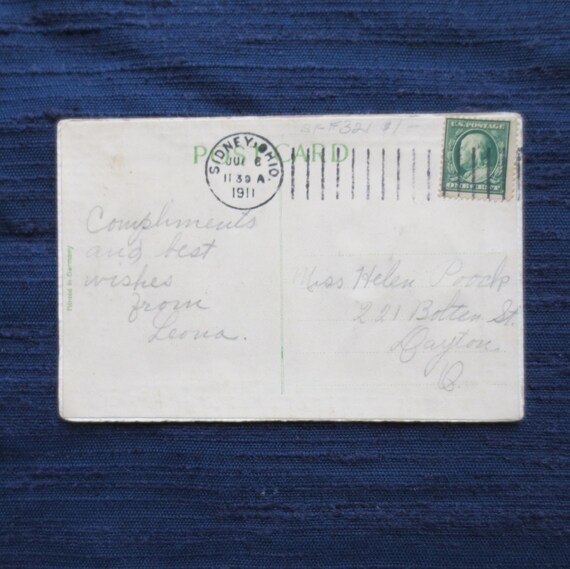 #321 $1-
POST CARD
SIDNEY, OHIO.
11 30 A
1911
U.S. POSTAGE
ONE CENT
Compliments
and best
wishes
from
Leona.
Miss Helen
221 St.
Dayton
O
Printed in Germany